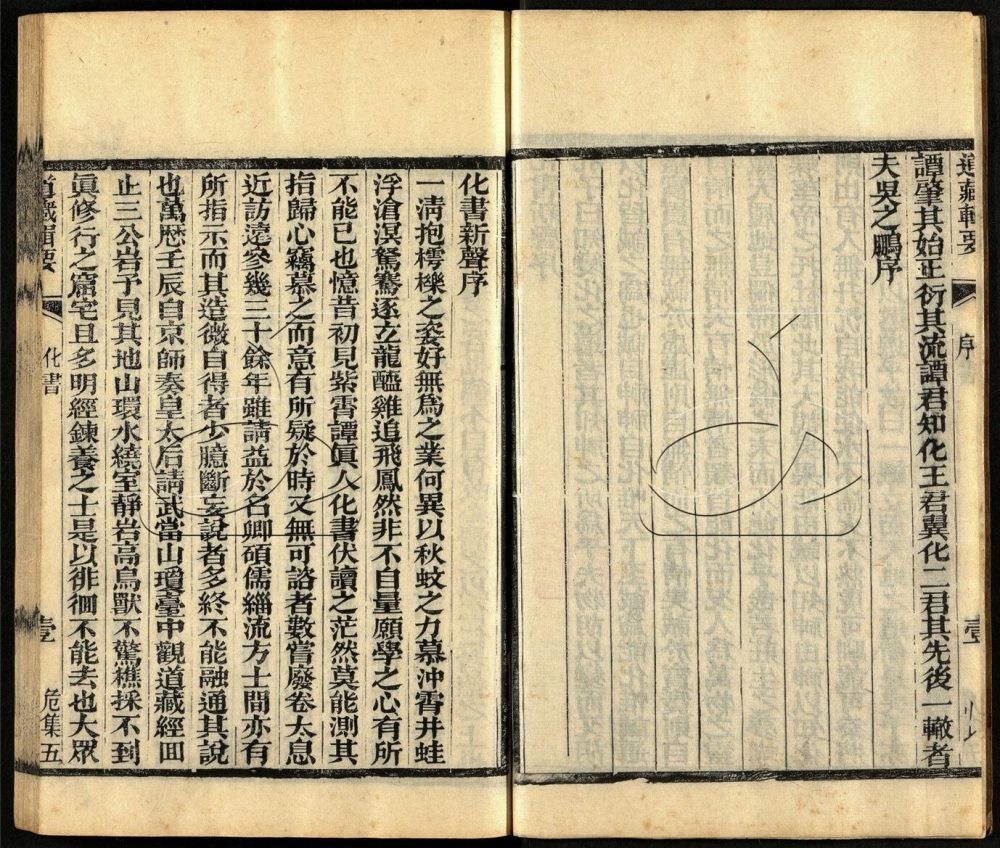 道藏輯要
序
壹
譚肇其始正衍其流譚君知化王君翼化二君其先後一轍者
夫吳之鵬序
化書新聲序
一淸抱樗櫟之姿好無爲之業何異以秋蚊之力慕沖霄井蛙
浮滄溟駑騫逐立龍醯雞追飛鳳然非不自量願學之心有所
不能已也憶昔初見紫霄譚眞人化書伏讀之茫然莫能測其
指歸心竊慕之而意有所疑於時又無可諮者數嘗廢卷太息
近訪遠參幾三十餘年雖請益於名卿碩儒緇流方士間亦有
所指示而其造微自得者少臆斷妄說者多終不能融通其說
也萬歷壬辰自京師奏皇太后請武當山瓊臺中觀道藏經回
止三公岩予見其地山環水繞室靜岩高鳥獸不驚樵採不到
眞修行之窟宅且多明經鍊養之士是以徘徊不能去也大眾
道藏輯要
化書
壹
危集五